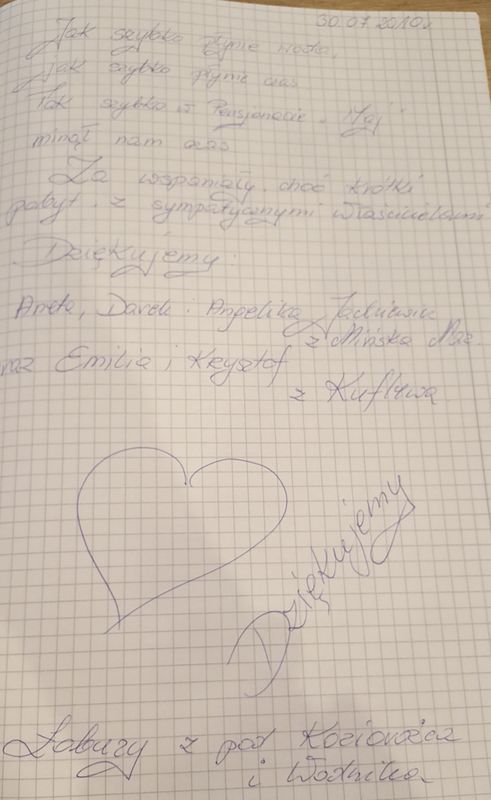 30.07.2010r
Jak szybko płynie woda,
jak szybko płynie czas
Tak szybko w Pensjonacie "Maj"
minął nam czas
Za wspaniały, choć krótki
pobyt z sympatycznymi właścicielami
Dziękujemy:
Aneta, Darek i Angelika
z Mińska Maz.
oraz Emilia i Krzysztof
z Kuflewa
Dziękujemy
z pod
i Wodnika